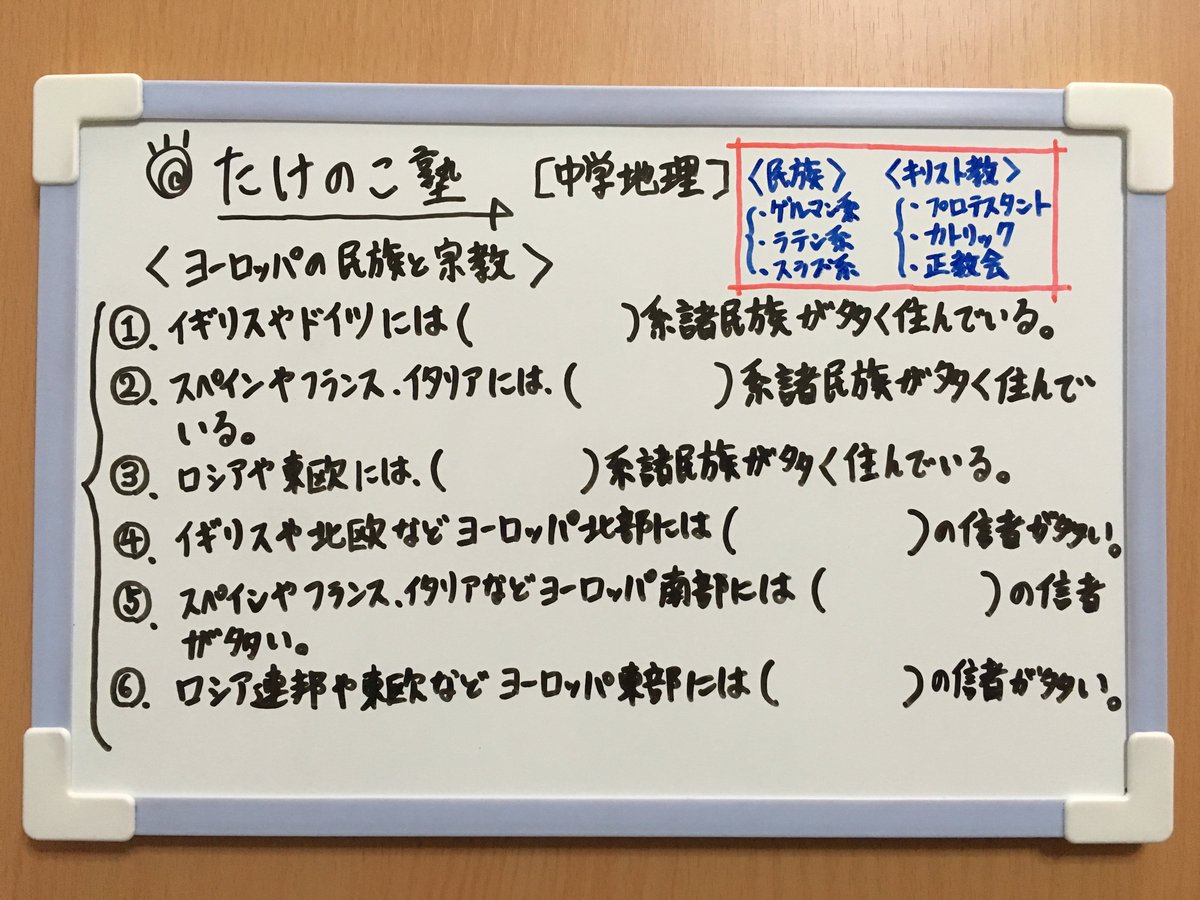 たけのこ塾
[中学地理]
〈民族〉
・ゲルマン系
・ラテン系
・スラブ系
〈キリスト教〉
・プロテスタント
・カトリック
・正教会
〈ヨーロッパの民族と宗教〉
①. イギリスやドイツには(　　　　)系諸民族が多く住んでいる。
②. スペインやフランス、イタリアには、(　　　　)系諸民族が多く住んで
いる。
③. ロシアや東欧には、(　　　　)系諸民族が多く住んでいる。
④. イギリスや北欧などヨーロッパ北部には(　　　　)の信者が多い。
⑤. スペインやフランス、イタリアなどヨーロッパ南部には(　　　　)の信者
が多い。
⑥. ロシア連邦や東欧などヨーロッパ東部には(　　　　)の信者が多い。